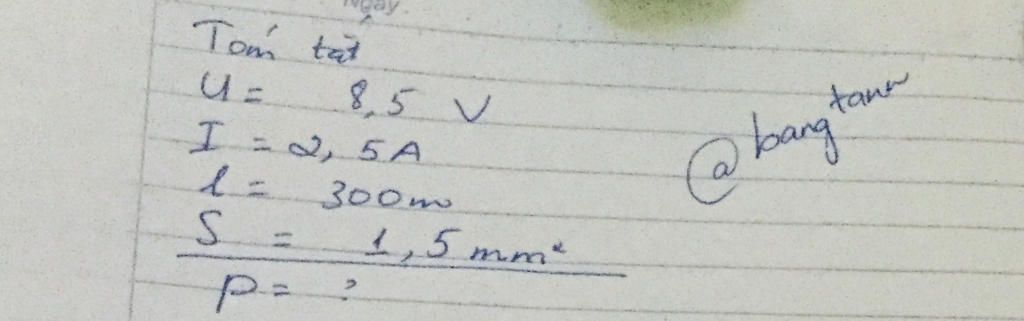 Ngày
Tóm tắt
U = 8,5 V
I = 2,5A
l = 300m
S = 1,5 mm²
p = ?
@bangtann